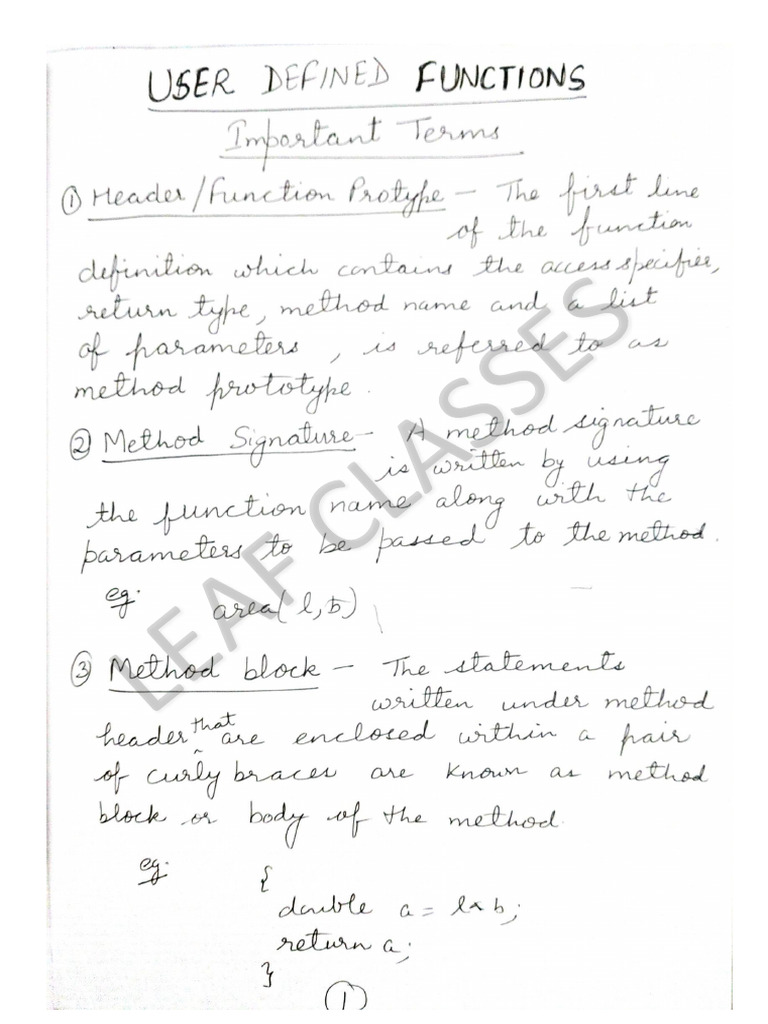 USER DEFINED FUNCTIONS
Important Terms
① Header/Function Protype – The first line
of the function
definition which contains the access specifier,
return type, method name and a list
of parameters, is referred to as
method prototype.
② Method Signature – A method signature
is written by using
the function name along with the
parameters to be passed to the method.
eg. area( l, b)
③ Method block – The statements
written under method
header that are enclosed within a pair
of curly braces are known as method
block or body of the method.
eg. {
double a = l * b;
return a;
}
①
LEAF CLASSES